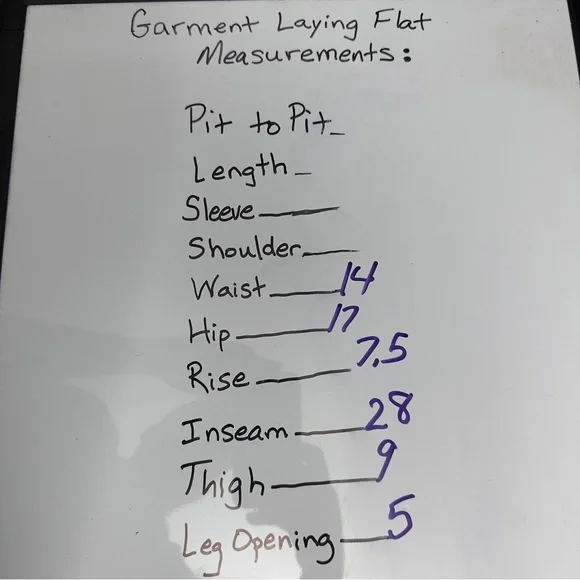 Garment Laying Flat
Measurements:
Pit to Pit_
Length_
Sleeve____
Shoulder____
Waist____14
Hip____17
Rise____7.5
Inseam____28
Thigh____9
Leg Opening____5